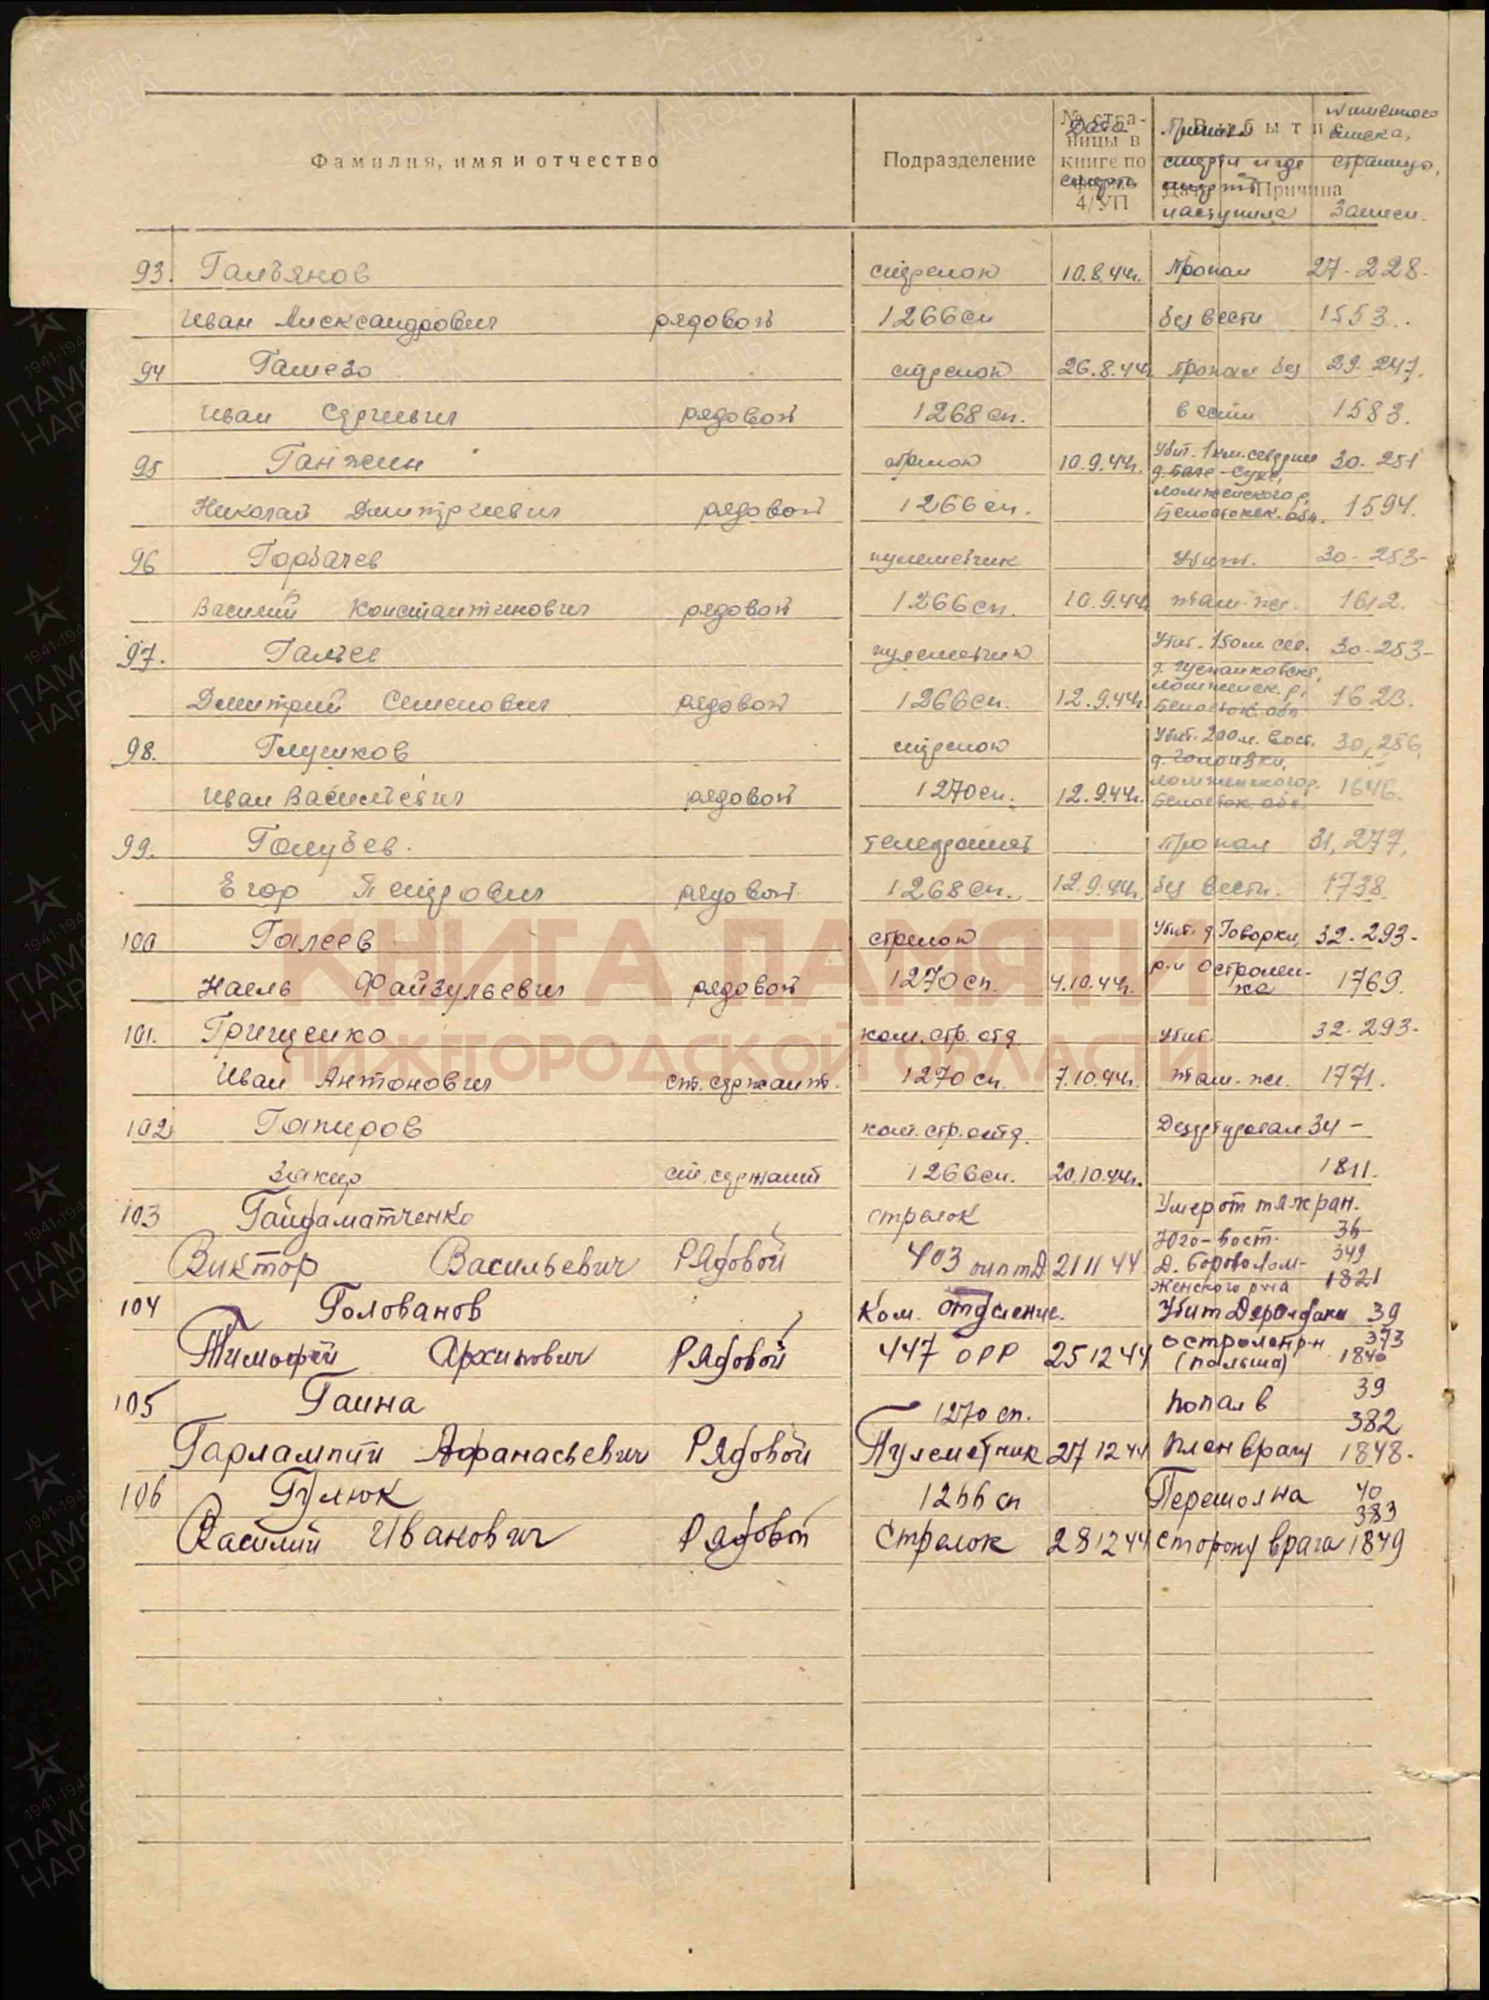 Фамилия, имя и отчество Подразделение № страницы в книге по форме 4/УП Выбытие Дата Причина
Дата смерти Причина смерти и где смерть наступила № именного списка, страница, записи.
93. Гальянов стрелок 10.8.44г. Пропал 27-228-
Иван Александрович рядовой 1266сп без вести 1553.
94 Гамезо стрелок 26.8.44г. Пропал без 29-247.
Иван Сергиевич рядовой 1268сп. вести 1583.
95 Ганжин стрелок 10.9.44г. Убит. 1км. севернее 30-251
д. Сухе,
Николай Дмитриевич рядовой 1266сп. Ломженского р, Белостокск. обл. 1594.
96 Горбачев пулеметчик Убит. 30-253-
Василий Константинович рядовой 1266сп. 10.9.44г. там-же. 1612.
97. Гальев пулеметчик Убит. 150м сев. 30-253-
Дмитрий Семенович рядовой 1266сп. 12.9.44г. Ломженск. р, Белосток. обл 1623.
98. Глушков стрелок Убит. 200м. вост. 30,256,
Иван Васильевич рядовой 1270сп. 12.9.44г. Ломженского р. Белосток. обл. 1646.
99. Голубев. телефонист Пропал 31,277,
Егор Петрович рядовой 1268сп. 12.9.44г. без вести. 1738.
100 Галеев стрелок Убит. д Говорки, 32-293-
Наель Файзульевич рядовой 1270сп. 4.10.44г. р-н Остролен-ка 1769.
КНИГА ПАМЯТИ
101. Грищенко ком. стр. отд Убит 32-293-
НИЖЕГОРОДСКОЙ ОБЛАСТИ
Иван Антонович ст. сержант. 1270сп. 7.10.44г. там-же. 1771.
102 Гапиров ком. стр. отд. Дезертировал 34-
Закир ст. сержант 1266сп. 20.10.44г. 1811.
103 Гайдаматченко стрелок Умер от тяж ран.
Юго-вост. 36
Виктор Васильевич Рядовой 403 оиптД 21 11 44 д. Борово Лом- 349
женского р-на 1821
104 Голованов Ком. отделение. Убит 39
Тимофей Архипович Рядовой 447 ОРР 25 12 44 Остролен р-н (Польша) 373 1840
105 Гаина 1270 сп. Попал в 39
382
Гарлампий Афанасьевич Рядовой Пулеметчик 27 12 44 плен врагу 1848-
106 Гулюк 1266 сп Перешол на 40
383
Василий Иванович Рядовой Стрелок 28 12 44 сторону врага 1849
ПАМЯТЬ НАРОДА
1941-1945